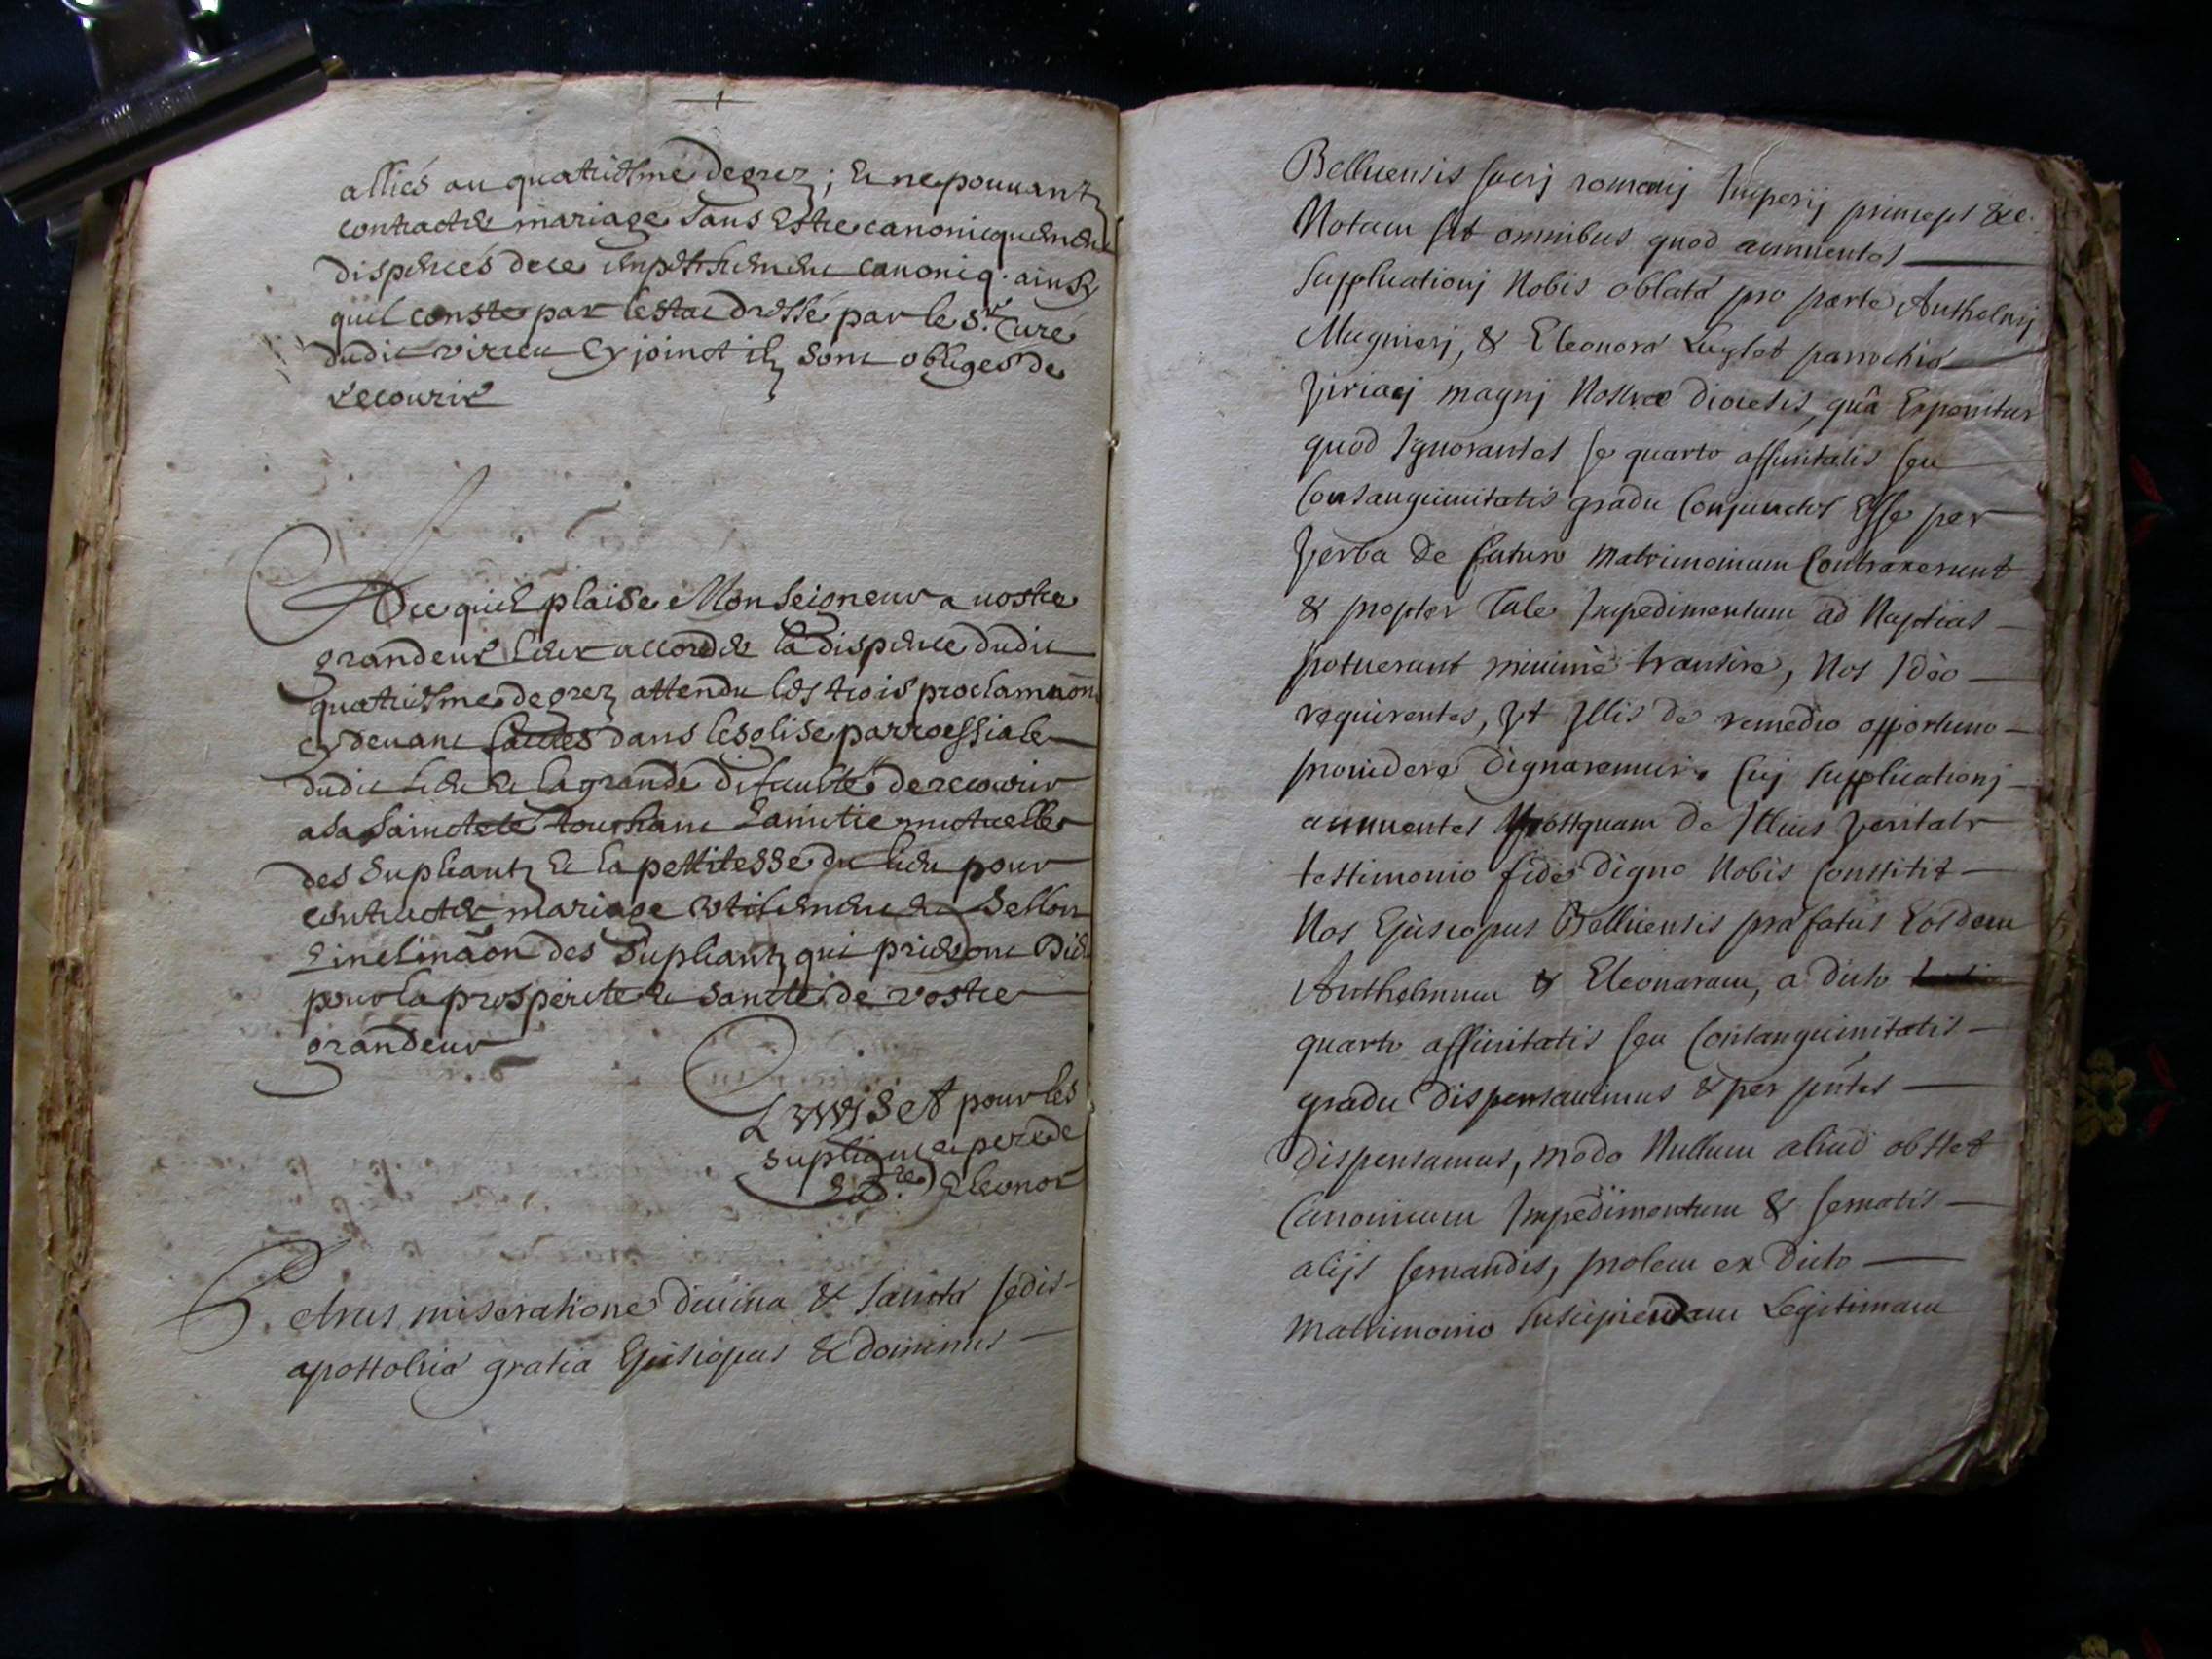 alliés au quatriesme degrez ; et ne pouuantz
contracter mariage sans estre canonicquement
dispencés de ce empeschement canoniq. ainsy
quil conste par lestat dressé par le Sr. Curé
dudit virieu cy joinct ilz sont obligés de
recourir
A ce quil plaise Monseigneur a vostre
grandeur leur accorder la dispence dudit
quatriesme degrez attendu les trois proclamaõn
cy deuant faictes dans lesglise parroessiale
dudit lieu et la grande dificulté de recourir
a sa Saincteté touchant lamitie mutuelle
des Supliantz et la pettitesse du lieu pour
contracter mariage vtilement et sellon
linclinaõn des Supliantz qui prieront Dieu
pour la prosperite et sancté de vostre
grandeur
pour les
supliant et pere de
lad.te Eleonor
Petrus miseratione diuina & sancta sedis
apostolica gratia Episcopus & dominus
Bellicensis sacrj romanj Imperij princeps &c.
Notum sit omnibus quod annuentes
supplicationj Nobis oblata pro parte Anthelmj
Mugnierj, & Eleonora parrochia
Viriacj magnj Nostræ diocesis, quâ Exponitur
quod Ignorantes se quarto affinitatis seu
Consanguinitatis gradu Conjunctos Esse per
Verba de futuro Matrimonium Contraxerunt
& propter Tale Impedimentum ad Nuptias
potuerunt minimè transire, Nos Ideo
requirentes, Vt Illis de remedio opportuno
prouidere dignaremur. Cuj supplicationj
annuentes postquam de Illius Veritate
testimonio fide digno Nobis Constitit
Nos Episcopus Bellicensis præfatus Eosdem
Anthelmum & Eleonoram, a dicto
quarto affinitatis seu Consanguinitatis
gradu dispensauimus & per pñtes
dispensamus, modo Nullum aliud obstet
Canonicum Impedimentum & seruatis
alijs seruandis, prolem ex dicto
Matrimonio suscipiendam Legitimam